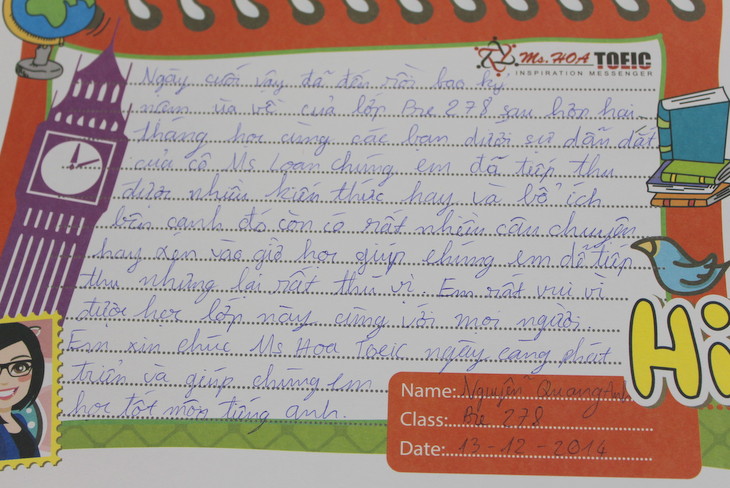 Ms. HOA TOEIC
INSPIRATION MESSENGER
Ngày cuối vậy đã đến rồi bao kỷ
năm ùa về của lớp Pre 278 sau hơn hai
tháng học cùng các bạn dưới sự dẫn dắt
của cô Ms Loan chúng em đã tiếp thu
được nhiều kiến thức hay và bổ ích
bên cạnh đó còn có rất nhiều câu chuyện
hay xen vào giờ học giúp chúng em dễ tiếp
thu nhưng lại rất thú vị. Em rất vui vì
được học lớp này cùng với mọi người.
Em xin chúc Ms Hoa Toeic ngày càng phát
triển và giúp chúng em
học tốt môn tiếng anh.
Hi
Name: Nguyễn Quang
Class: Pre 278
Date: 13-12-2014